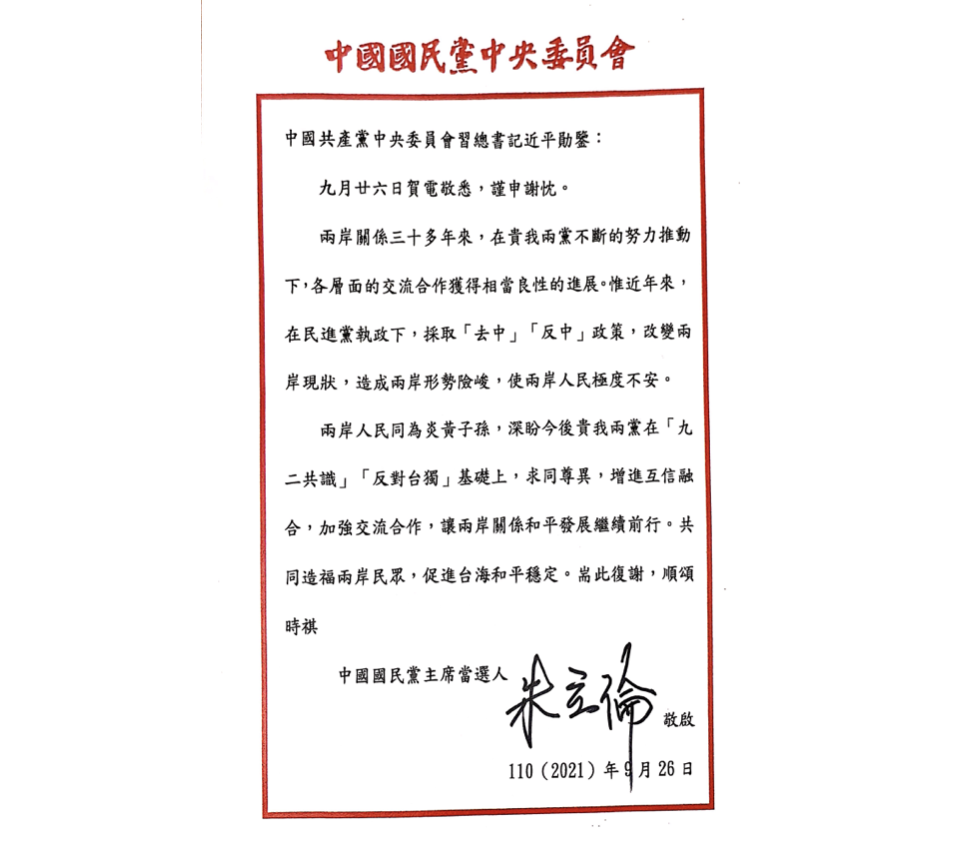 中國國民黨中央委員會
中國共產黨中央委員會習總書記近平勛鑒：
九月廿六日賀電敬悉，謹申謝忱。
兩岸關係三十多年來，在貴我兩黨不斷的努力推動
下，各層面的交流合作獲得相當良性的進展。惟近年來，
在民進黨執政下，採取「去中」「反中」政策，改變兩
岸現狀，造成兩岸形勢險峻，使兩岸人民極度不安。
兩岸人民同為炎黃子孫，深盼今後貴我兩黨在「九
二共識」「反對台獨」基礎上，求同尊異，增進互信融
合，加強交流合作，讓兩岸關係和平發展繼續前行。共
同造福兩岸民眾，促進台海和平穩定。耑此復謝，順頌
時祺
中國國民黨主席當選人 朱立倫 敬啟
110（2021）年9月26日